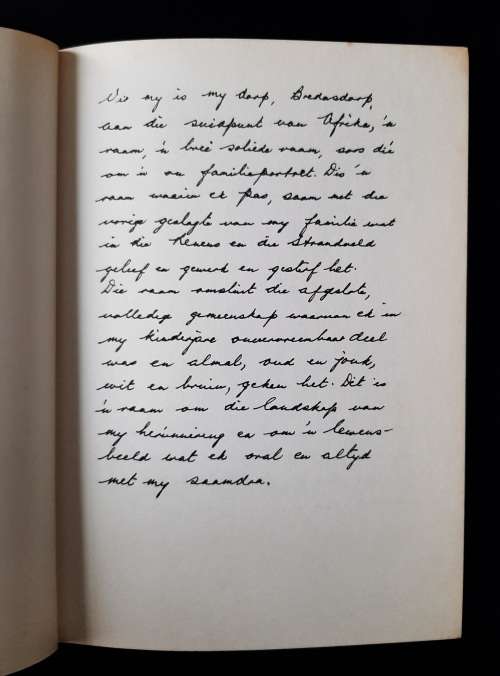 Vir my is my dorp, Bredasdorp,
aan die suidpunt van Afrika, 'n
raam, 'n breë soliede raam, soos dié
om 'n ou familieportret. Dis 'n
raam waarin ek pas, saam met die
vorige geslagte van my familie wat
in die Rûens en die Strandveld
geleef en gewerk en gesterf het.
Die raam omsluit die afgeslote,
volledige gemeenskap waarvan ek in
my kinderjare onvervreembaar deel
was en almal, oud en jonk,
wit en bruin, geken het. Dit is
'n raam om die landskap van
my herinnering en om 'n lewens-
beeld wat ek oral en altyd
met my saamdra.